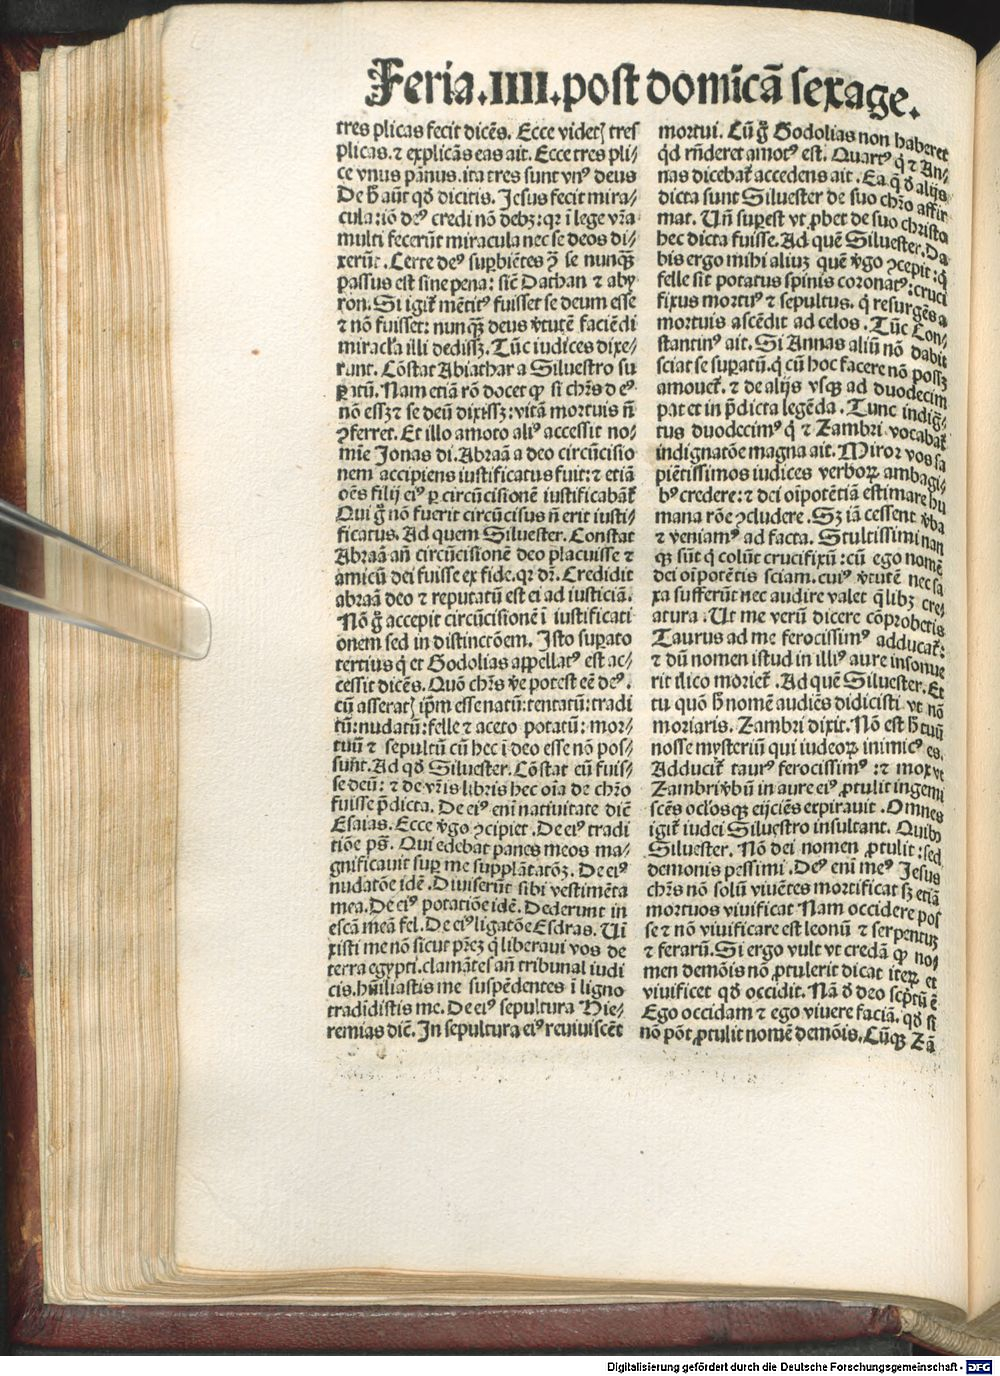 Feria.IIII.post domicã sexage.
tres plicas fecit dicẽs. Ecce videtꝭ tres
plicas.⁊ explicãs eas ait. Ecce tres pli⸗
ce vnus pãnus.ita tres sunt vnꝰ deus
De h̄ aũt qđ dicitis. Jesus fecit mira⸗
cula:iõ deꝰ credi nõ debꝫ:qꝛ ĩ lege vr̃a
multi fecerũt miracula nec se deos di⸗
xerũt. Certe deꝰ suꝑbiẽtes ꝯ̃ se nunqꝫ
passus est sine pena: sic̃ Dathan ⁊ aby
ron. Si igit̃ mẽtitꝰ fuisset se deum esse
⁊ nõ fuisset: nunqꝫ deus v̓tutẽ faciẽdi
miracl̃a illi dedissꝫ. Tũc iudices dixe⸗
runt. Cõstat Abiathar a Siluestro su
ꝑatũ. Nam etiã rõ docet ꝙ si chr̃s dꝰeꝰ
nõ essꝫ ⁊ se deũ dixissꝫ:vitã mortuis ñ
ꝯferret. Et illo amoto aliꝰ accessit no⸗
mie Jonas di. Abraã a deo circũcisio
nem accipiens iustificatus fuit: ⁊ etiã
oẽs filij eiꝰ ꝑ circũcisionẽ iustificabãt̃
Qui g̃ nõ fuerit circũcisus ñ erit iusti⸗
ficatus. Ad quem Siluester. Constat
Abraã añ circũcisionẽ deo placuisse ⁊
amicũ dei fuisse ex fide.qꝛ dr̃. Credidit
abraã deo ⁊ reputatũ est ei ad iusticiã.
Nõ g̃ accepit circũcisionẽ ĩ iustificati
onem sed in distinctõem. Isto suꝑato
tertius q̇ et Godolias appellatꝰ est ac⸗
cessit dicẽs. Quõ chr̃s v̓e potest eẽ deꝰ.
cũ asseratꝭ ip̃m esse natũ:tentatũ:tradi
tũ:nudatũ:felle ⁊ aceto potatũ: mor⸗
tuũ ⁊ sepultũ cũ hec ĩ deo esse nõ pos⸗
sunt. Ad qđ Siluester. Cõstat eũ fuis⸗
se deũ: ⁊ de vr̃is libris hec oĩa de chr̃o
fuisse p̃dicta. De eiꝰ enĩ natiuitate dic̃
Esaias. Ecce v̓go ꝯcipiet. De eiꝰ tradi
tiõe pš. Qui edebat panes meos ma⸗
gnificauit suꝑ me supplãtatõꝫ. De eiꝰ
nudatõe idẽ. Diuiserũt sibi vestimẽta
mea. De eiꝰ potatiõe idẽ. Dederunt in
escã meã fel. De eiꝰ ligatõe Esdras. Ui
xisti me nõ sicut pr̃eꝫ q̇ liberaui vos de
terra egypti.clamãtes añ tribunal iudi
cis.hũiliastis me suspẽdentes ĩ ligno
tradidistis me. De eiꝰ sepultura Hie⸗
remias dic̃. In sepultura eiꝰ reuiuiscẽt
mortui. Cũ g̃ Godolias non haberet
qđ rñderet amotꝰ est. Quartꝰ q̇ ⁊ An⸗
nas dicebat̃ accedens ait. Ea q̃ đ alijs
dicta sunt Siluester de suo chr̃o affir
mat. Uñ suꝑest vt ꝓbet de suo christo
hec dicta fuisse. Ad quẽ Siluester. Da
bis ergo mihi aliuꝫ quẽ v̓go ꝯcepit:q̇
felle sit potatus spinis coronatꝰ:cruci
fixus mortuꝰ ⁊ sepultus. q̇ resurgẽs a
mortuis ascẽdit ad celos. Tũc Con⸗
stantinꝰ ait. Si Annas aliũ nõ dabit
sciat se suꝑatũ.q̇ cũ hoc facere nõ possꝫ
amouet̃. ⁊ de alijs vsqꝫ ad duodecim
pat et in p̃dicta legẽda. Tunc indig̃⸗
tus duodecimꝰ q̇ ⁊ Zambri vocabat̃
indignatõe magna ait. Miror vos sa
piẽtissimos iudices verboꝝ ambagi⸗
bꝰ credere: ⁊ dei oĩpotẽtiã estimare hu
mana rõe ꝯcludere. Sꝫ iã cessent v̓ba
⁊ veniamꝰ ad facta. Stultissimi nan
qꝫ sũt q̇ colũt crucifixũ: cũ ego nomẽ
dei oĩpotẽtis sciam.cuiꝰ v̓tutẽ nec sa
xa sufferũt nec audire valet q̃libꝫ cre⸗
atura. Ut me verũ dicere cõprobetis
Taurus ad me ferocissimꝰ adducat̃:
⁊ dũ nomen istud in illiꝰ aure insonue
rit ilico moriet̃. Ad quẽ Siluester. Et
tu quõ h̄ nomẽ audiẽs didicisti vt nõ
moriaris. Zambri dixit. Nõ est h̄ tuũ
nosse mysteriũ qui iudeoꝝ inimicꝰ es.
Adducit̃ taurꝰ ferocissimꝰ: ⁊ mox vt
Zambri v̓bũ in aure eiꝰ ꝓtulit ingemi
scẽs ocl'osqꝫ eijciẽs expirauit. Omnes
igit̃ iudei Siluestro insultant. Quibꝰ
Siluester. Nõ dei nomen ꝓtulit:sed
demonis pessimi. Deꝰ enĩ meꝰ Jesus
chr̃s nõ solũ viuẽtes mortificat sꝫ etiã
mortuos viuificat Nam occidere pos
se ⁊ nõ viuificare est leonũ ⁊ serpentuꝫ
⁊ ferarũ. Si ergo vult vt credã ꝙ no⸗
men demõis nõ ꝓtulerit dicat iteꝝ et
viuificet qđ occidit. Nã đ deo scp̃tũ ẽ
Ego occidam ⁊ ego viuere faciã. qđ si
nõ põt ꝓtulit nomẽ demõis. Cũqꝫ Zã
Digitalisierung gefördert durch die Deutsche Forschungsgemeinschaft - DFG